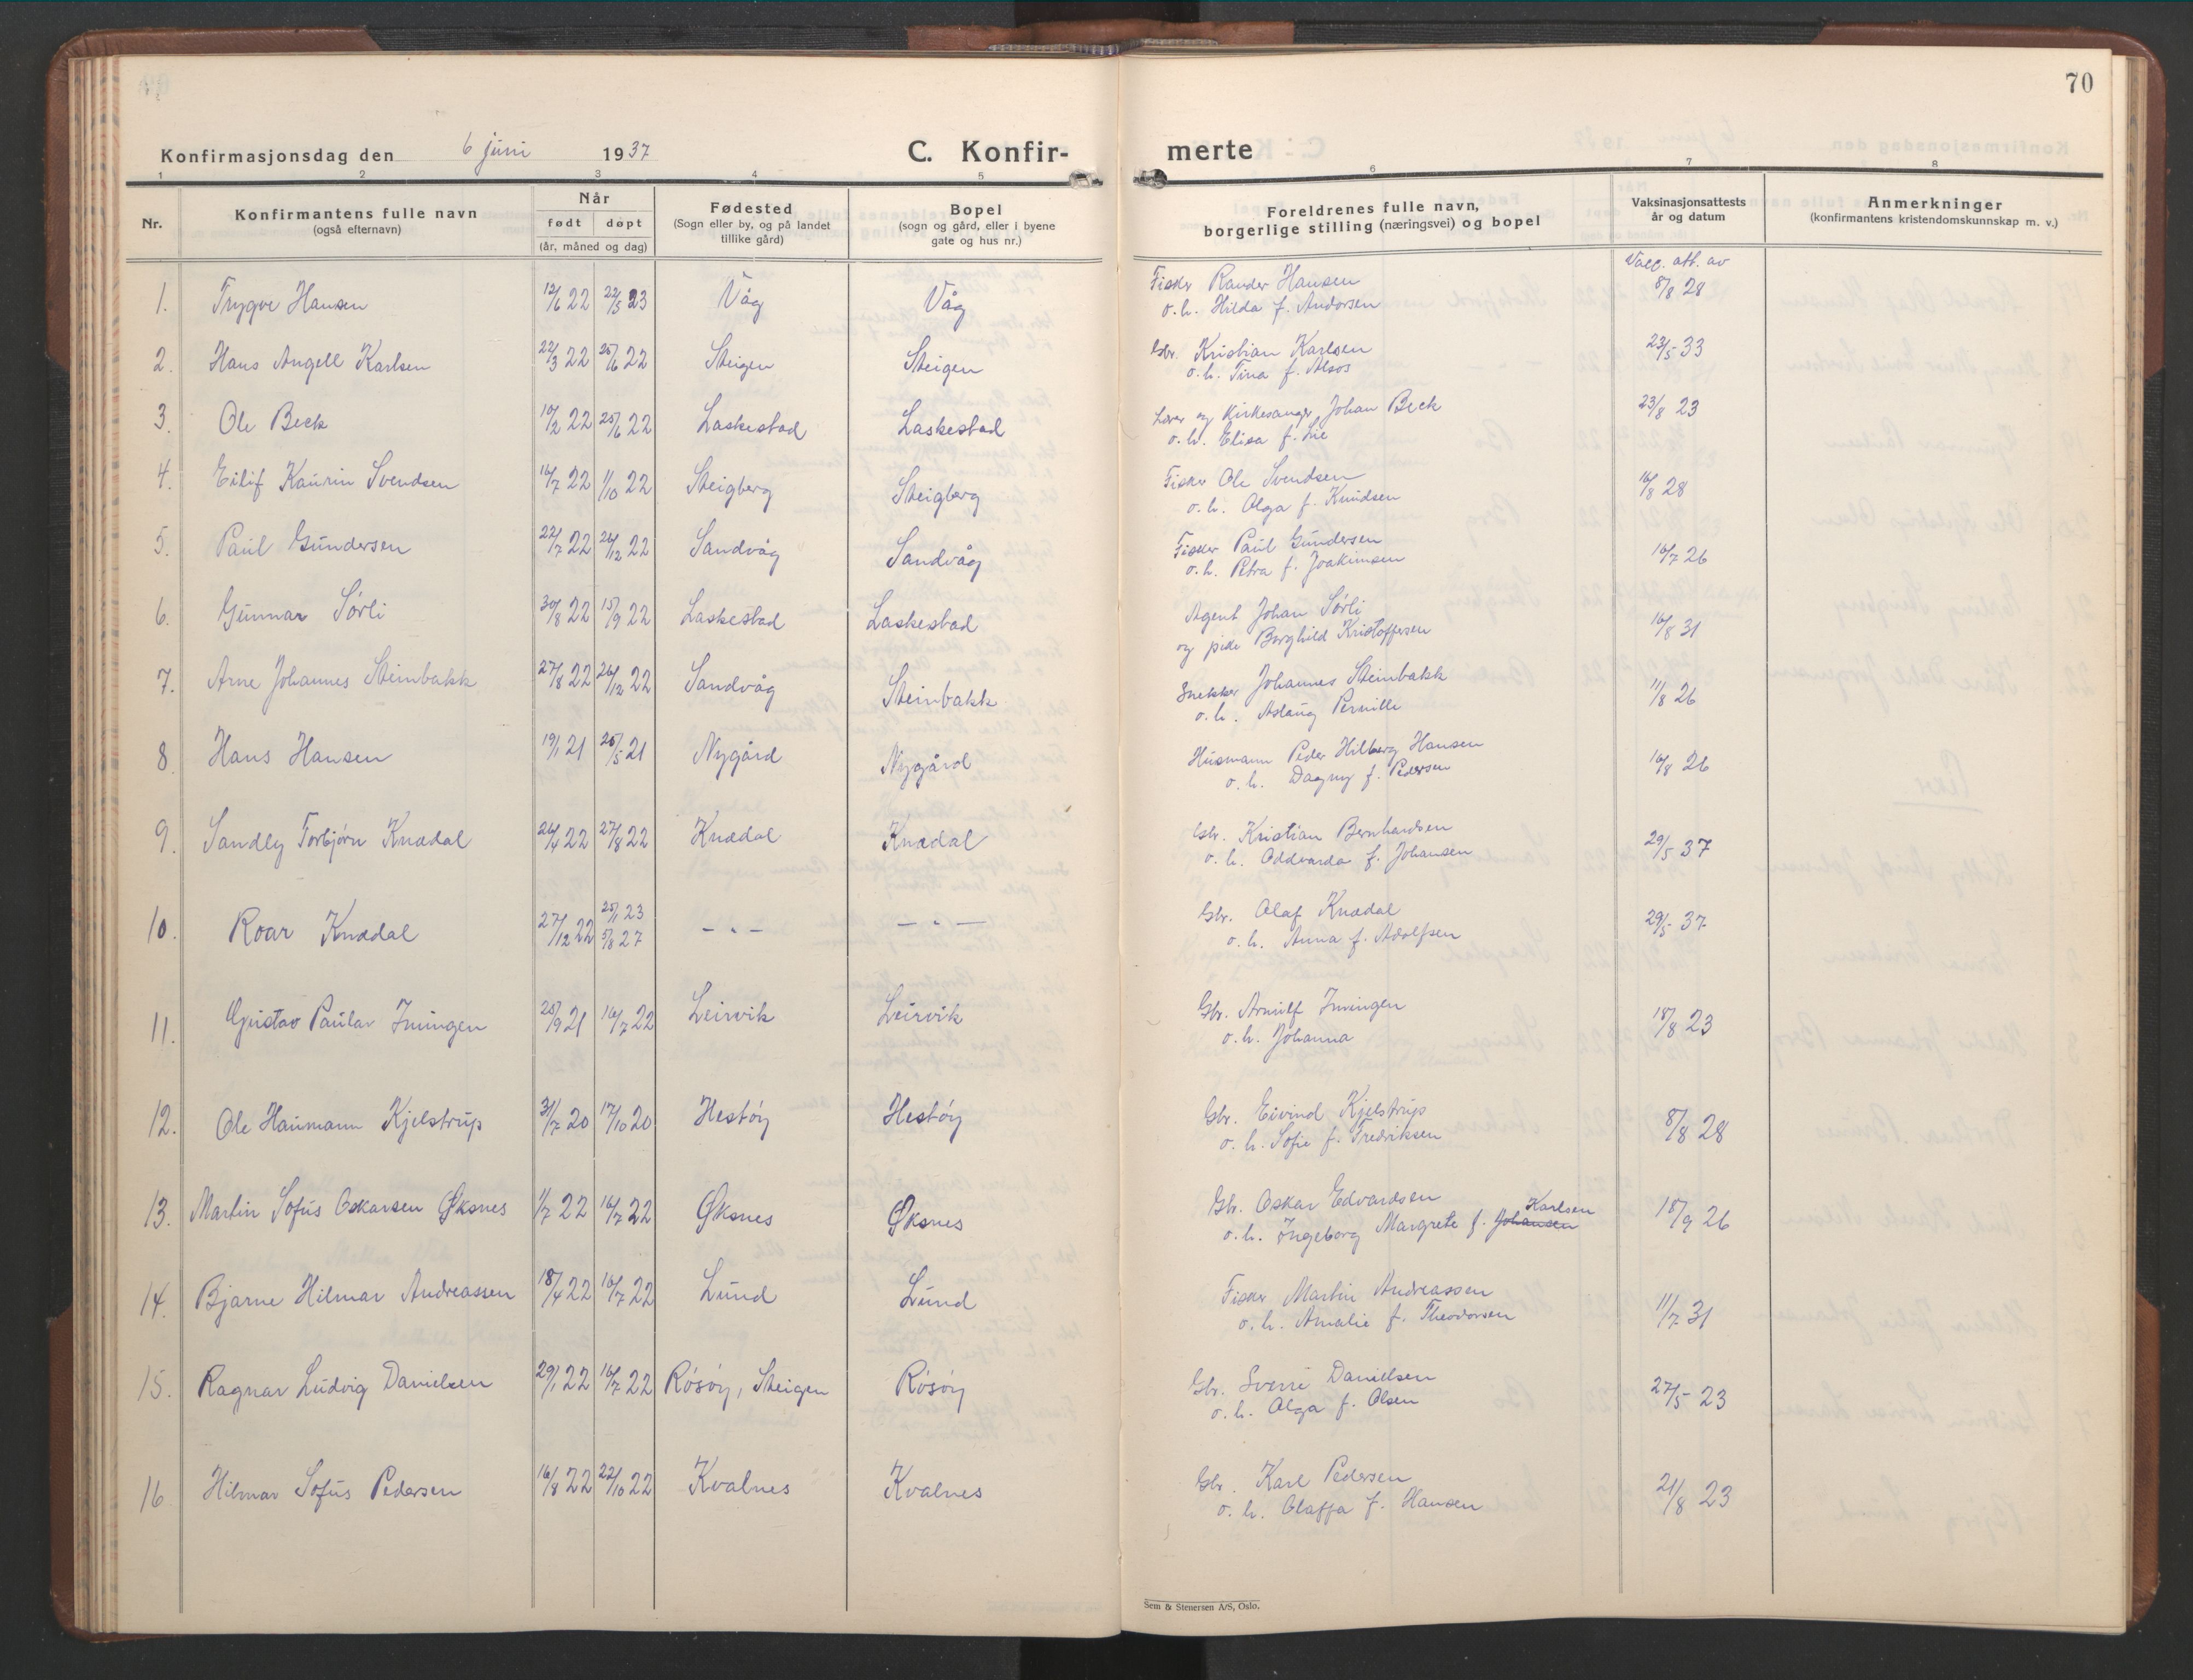 70
Konfirmasjonsdag den 6 juni 1937 C. Konfir-
merte
1 2 3 4 5 6 7 8
Nr.
Konfirmantens fulle navn
(også efternavn)
Når
født døpt
(år, måned og dag)
Fødested
(Sogn eller by, og på landet
tillike gård)
Bopel
(sogn og gård, eller i byene
gate og hus nr.)
Foreldrenes fulle navn,
borgerlige stilling (næringsvei) og bopel
Vaksinasjonsattests
år og datum
Anmerkninger
(konfirmantens kristendomskunnskap m. v.)
Vacc. att. av
1. Trygve Hansen 12/6 22 22/5 23 Våg Våg Fisker Rander Hansen 8/8 28
o. h. Hilda f. Andorsen
2. Hans Angell Karlsen 22/3 22 25/6 22 Steigen Steigen Gbr. Kristian Karlsen 23/5 33
o. h. Tina f. Alsos
3. Ole Beck 10/2 22 25/6 22 Laskestad Laskestad Lærer og Kirkesanger Johan Beck 23/8 23
o. h. Elisa f. Lie
4. Eilif Kaurin Svendsen 16/7 22 1/10 22 Steigberg Steigberg Fisker Ole Svendsen 16/8 28
o. h. Olga f. Knudsen
5. Paul Gundersen 22/7 22 26/12 22 Sandvåg Sandvåg Fisker Paul Gundersen 16/7 26
o. h. Petra f. Joakimsen
6. Gunnar Sørli 30/8 22 15/9 22 Laskestad Laskestad Agent Johan Sørli 16/8 31
og pike Borghild Kristoffersen
7. Arne Johannes Steinbakk 27/8 22 26/12 22 Sandvåg Steinbakk Snekker Johannes Steinbakk 11/8 26
o. h. Aslaug Pernille
8. Hans Hansen 19/1 21 26/5 21 Nygård Nygård Husmann Peder Hilberg Hansen 16/8 26
o. h. Dagny f. Pedersen
9. Sandly Torbjørn Knædal 26/4 22 27/8 22 Knædal Knædal Gbr. Kristian Bernhardsen 29/5 37
o. h. Oddvarda f. Johansen
10. Roar Knædal 27/12 22 25/1 23 5/8 27 – " – – " – Gbr. Olaf Knædal 29/5 37
o. h. Anna f. Adolfsen
11. Gustav Paular Inningen 25/9 21 16/7 22 Leirvik Leirvik Gbr. Arnulf Inningen 18/8 23
o. h. Johanna
12. Ole Haumann Kjelstrup 31/7 20 17/10 20 Hestøy Hestøy Gbr. Eivind Kjelstrup 8/8 28
o. h. Sofie f. Fredriksen
13. Martin Sofus Oskarsen Øksnes 1/7 22 16/7 22 Øksnes Øksnes Gbr. Oskar Edvardsen 18/9 26
o. h. Ingeborg Margrete f. Johansen Karlsen
14. Bjarne Hilmar Andreassen 18/4 22 16/7 22 Lund Lund Fisker Martin Andreassen 11/7 31
o. h. Amalie f. Theodorsen
15. Ragnar Ludvig Danielsen 29/1 22 16/7 22 Røsøy, Steigen Røsøy Gbr. Sverre Danielsen 27/5 23
o. h. Olga f. Olsen
16 Hilmar Sofus Pedersen 16/8 22 22/10 22 Kvalnes Kvalnes Gbr. Karl Pedersen 21/8 23
o. h. Olaffa f. Hansen
Sem & Stenersen A/S, Oslo.